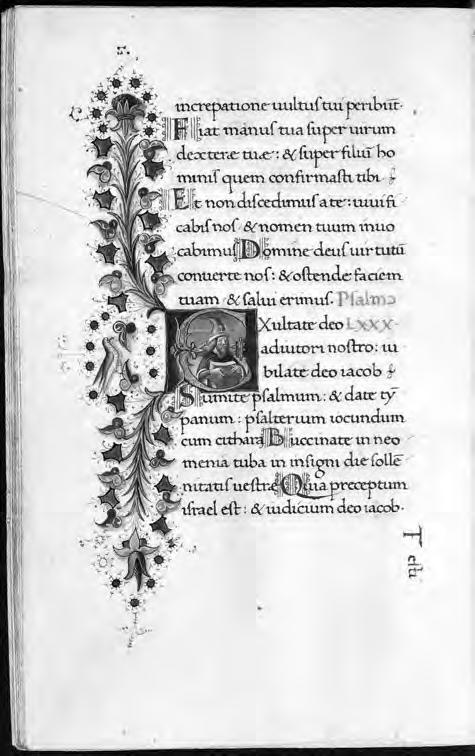 increpatione uultuſ tui peribūt.
Fiat manuſ tua ſuper uirum
dexteræ tuæ: & ſuper filiū ho
miniſ quem confirmaſti tibi
Et non diſcedimuſ a te: uiuifi
cabiſ noſ & nomen tuum inuo
cabimuſ Domine deuſ uirtutū
conuerte noſ: & oſtende faciem
tuam & ſalui erimuſ. Pſalmo
EXultate deo LXXX.
adiutori noſtro: iu
bilate deo iacob
Sumite pſalmum: & date tȳ
panum: pſalterium iocundum
cum cithara Buccinate in neo
menia tuba in inſigni die ſollē
nitatiſ ueſtræ Quia preceptum
iſrael eſt: & iudicium deo iacob.